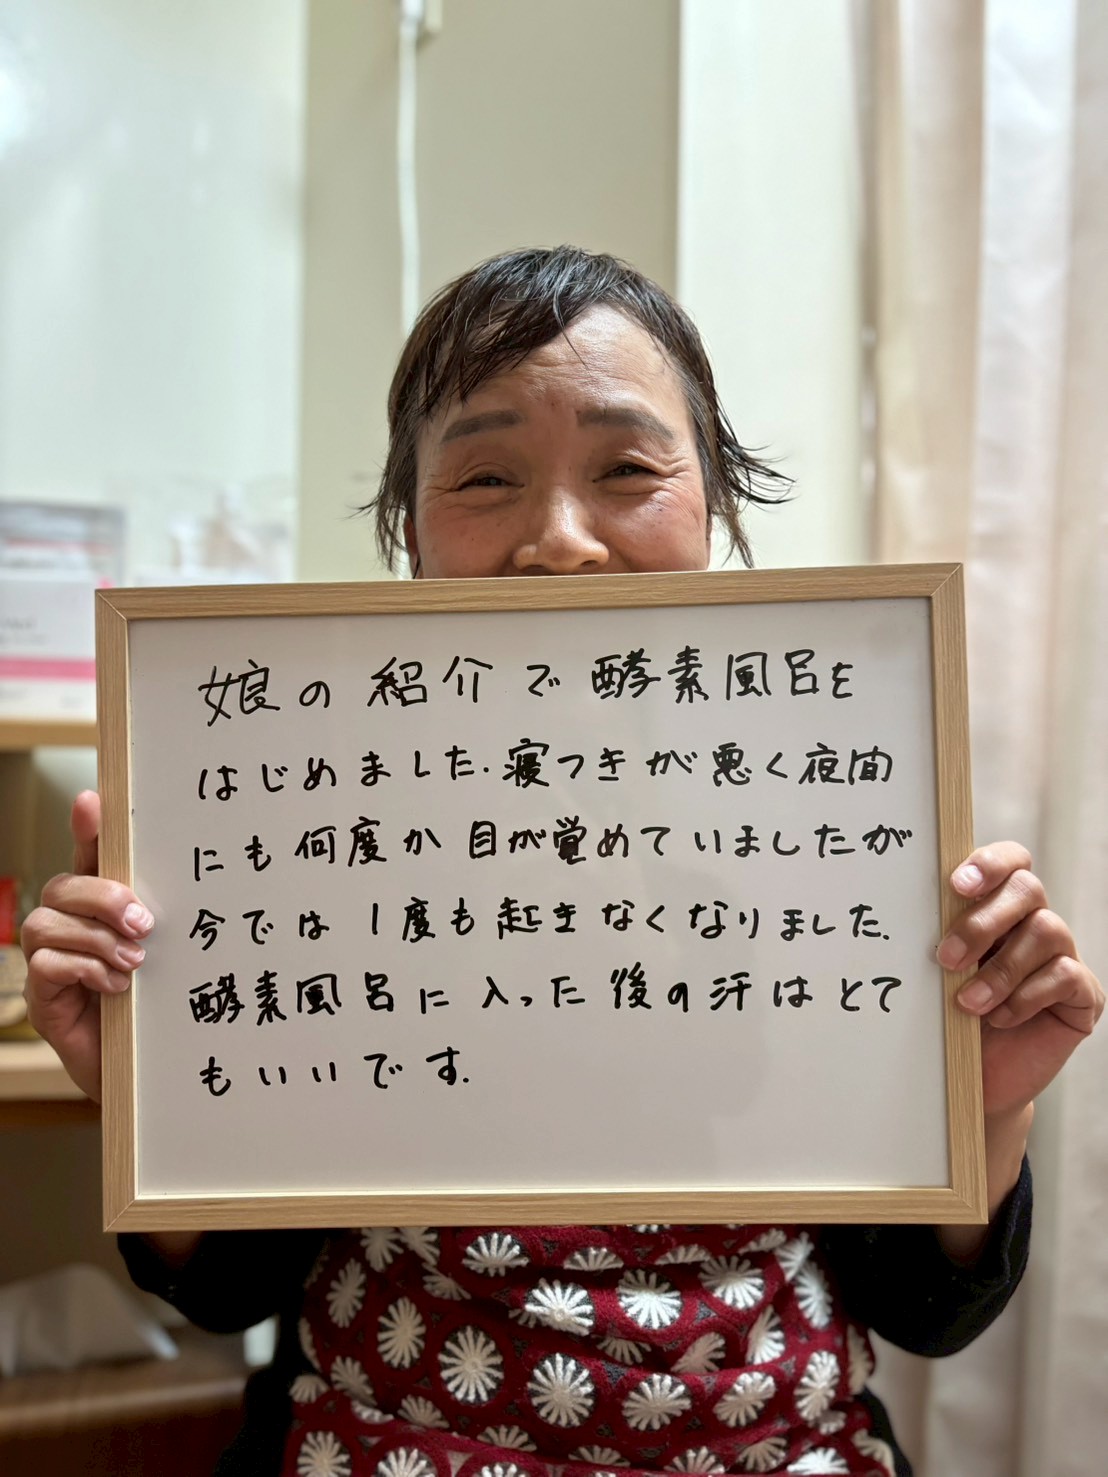 娘の紹介で酵素風呂を
はじめました.寝つきが悪く夜間
にも何度か目が覚めていましたが
今では1度も起きなくなりました.
酵素風呂に入った後の汗はとて
もいいです.